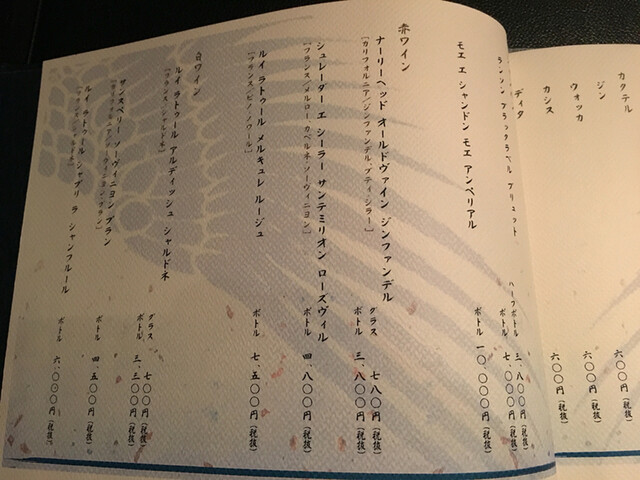 カクテル
ジン 六〇〇円(税抜)
ウォッカ 六〇〇円(税抜)
カシス 六〇〇円(税抜)
ディタ
ランソン ブラックラベル ブリュット
ハーフボトル 三、八〇〇円(税抜)
ボトル 七、〇〇〇円(税抜)
モエ エ シャンドン モエ アンペリアル
ボトル 一〇、〇〇〇円(税抜)
赤ワイン
ナーリーヘッド オールドヴァイン ジンファンデル
[カリフォルニア/ジンファンデル、プティ・シラー]
グラス 七八〇円(税抜)
ボトル 三、八〇〇円(税抜)
シュレーダー エ シーラー サンテミリオン ローズヴィル
[フランス/メルロー、カベルネ・ソーヴィニヨン]
ボトル 四、八〇〇円(税抜)
ルイ ラトゥール メルキュレ ルージュ
[フランス/ピノ・ノワール]
ボトル 七、五〇〇円(税抜)
白ワイン
ルイ ラトゥール アルディッシュ シャルドネ
[フランス/シャルドネ]
グラス 七〇〇円(税抜)
ボトル 三、三〇〇円(税抜)
サンスベリー ソーヴィニヨン ブラン
ボトル 四、五〇〇円(税抜)
ルイ ラトゥール シャブリ ラ シャンフルール
[フランス/シャルドネ]
ボトル 六、〇〇〇円(税抜)